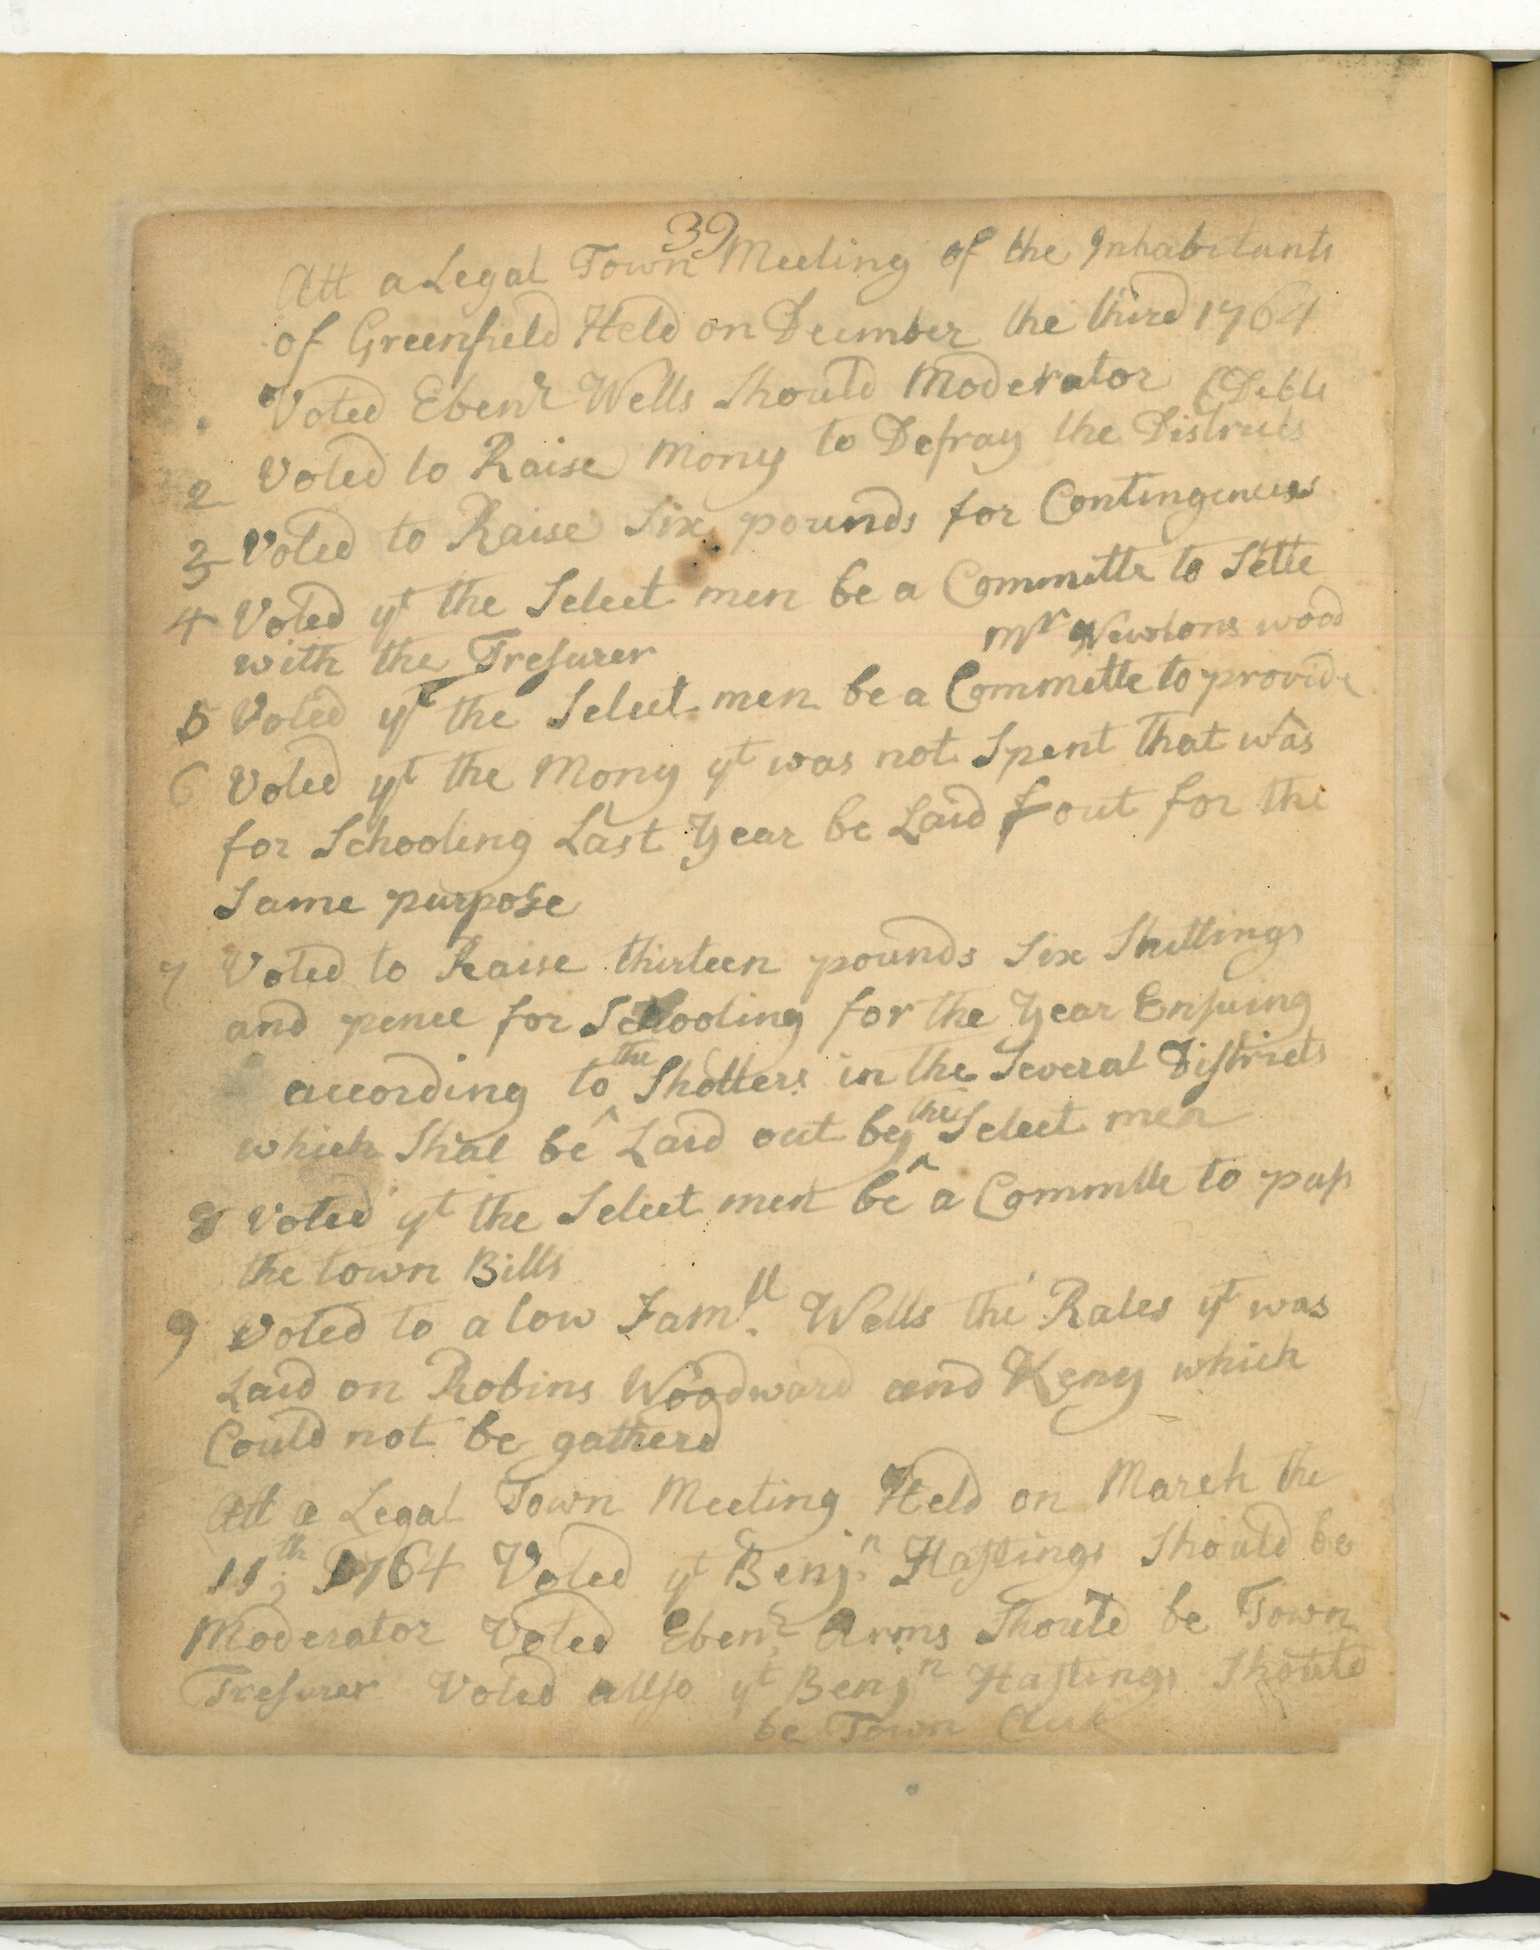 39
Att a Legal Town Meeting of the Inhabitants
of Greenfield Held on Decmber the third 1764
Voted Ebenr Wells Should Moderator (Debts
2 Voted to Raise Mony to Defray the Districts
3 Voted to Raise Six pounds for Contingences
4 Voted yt the Select men be a Committe to Settle
with the Tresurer Mr Newtons wood
5 Voted yt the Select men be a Committe to provide
6 Voted yt the Mony yt was not Spent That was
for Schooling Last Year be Laid out for the
Same purpose
7 Voted to Raise thirteen pounds Six Shillings
and pence for Schooling for the Year Ensuing
according to the Shollers in the Several Districts
which Shal be ^ Laid out by the Select men
8 Voted yt the Select men be ^ a Committe to pass
the town Bills
9 Voted to a low Samll. Wells the Rates yt was
Laid on Robins Woodward and Keny which
Could not be gatherd
Att a Legal Town Meeting Held on March the
11th; 1764 Voted yt Benj.n Hastings Should be
Moderator Voted Ebenr Arms Should be Town
Tresurer Voted allso yt Benjn Hastings Should
be Town Clerk